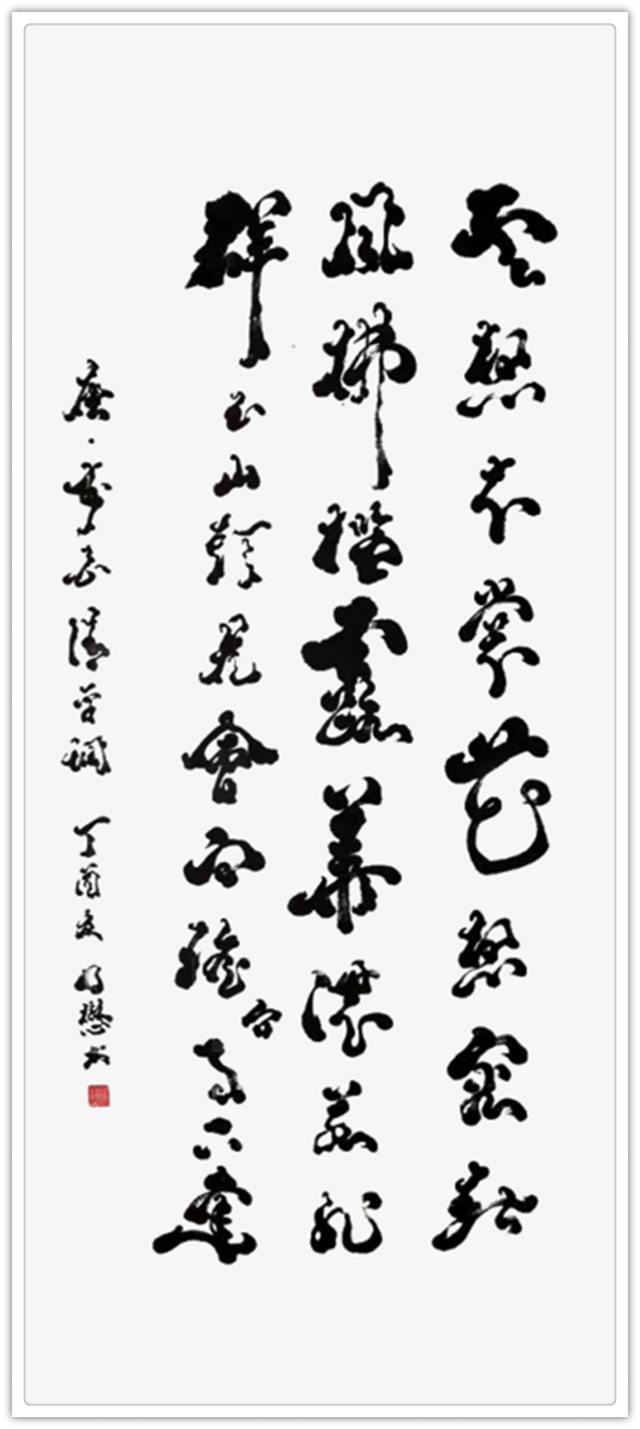 云想衣裳花想容春
風拂檻露華濃若非
群玉山頭見會向瑤台月下逢
唐·李白清平調 丁酉夏 乃懋书